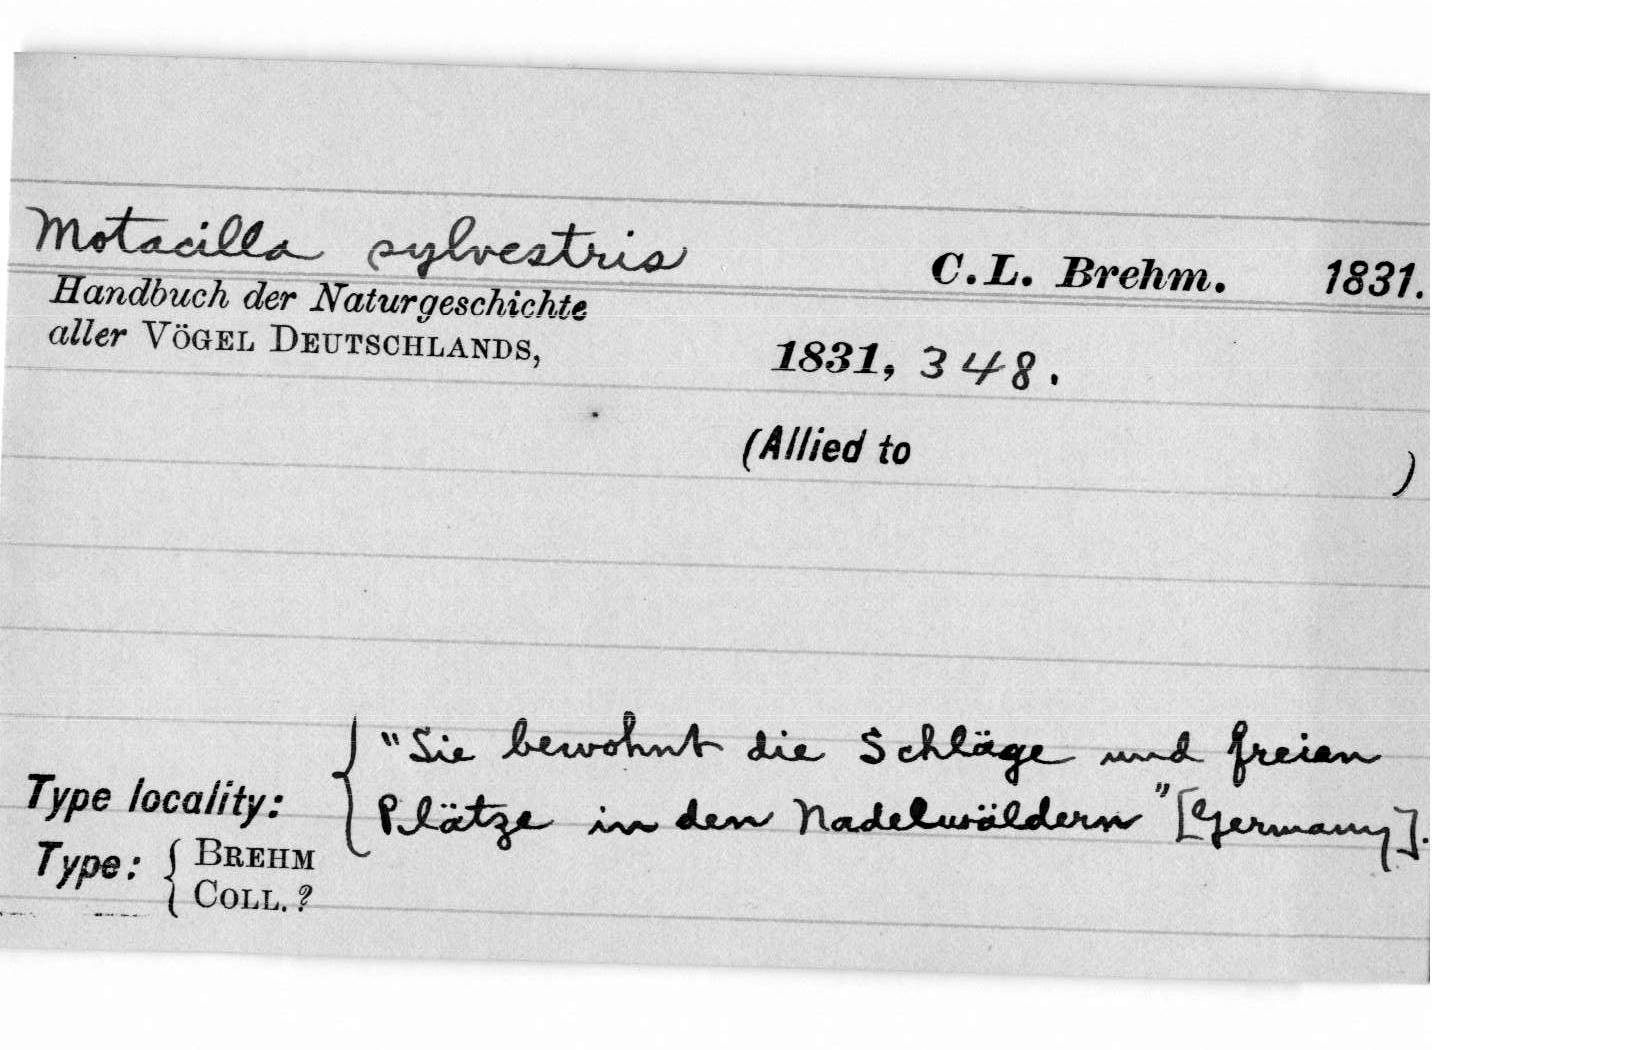 Motacilla sylvestris C.L. Brehm. 1831.
Handbuch der Naturgeschichte
aller VÖGEL DEUTSCHLANDS, 1831, 348.
(Allied to )
"Sie bewohnt die Schläge und freien
Type locality: Plätze in den Nadelwäldern" [Germany].
Type: BREHM
COLL. ?